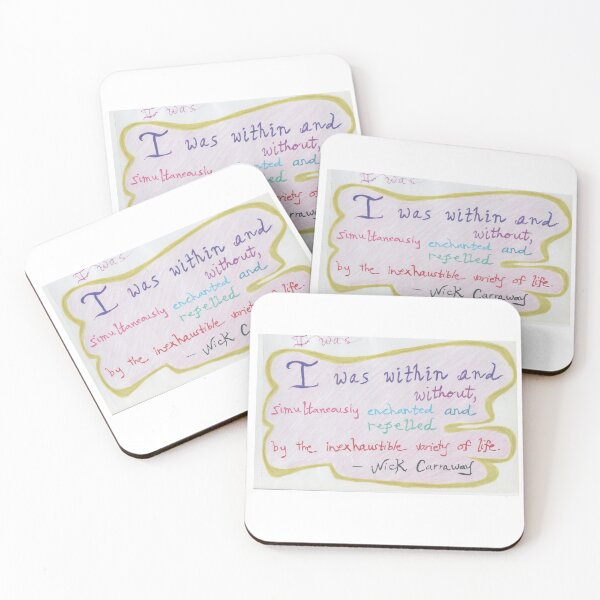 I was
I was within and
without,
simultaneously enchanted and
repelled
by the inexhaustible variety of life.
— Nick Carraway
I was
I was within and
without,
simultaneously enchanted and
repelled
by the inexhaustible variety of life.
— Nick Carraway
I was
I was within and
without,
simultaneously enchanted and
repelled
by the inexhaustible variety of life.
— Nick Carraway
I was
I was within and
without,
simultaneously enchanted and
repelled
by the inexhaustible variety of life.
— Nick Carraway